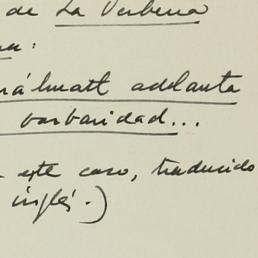 de La Verbena
adelanta
barbaridad...
este caso, traducido
inglés.)